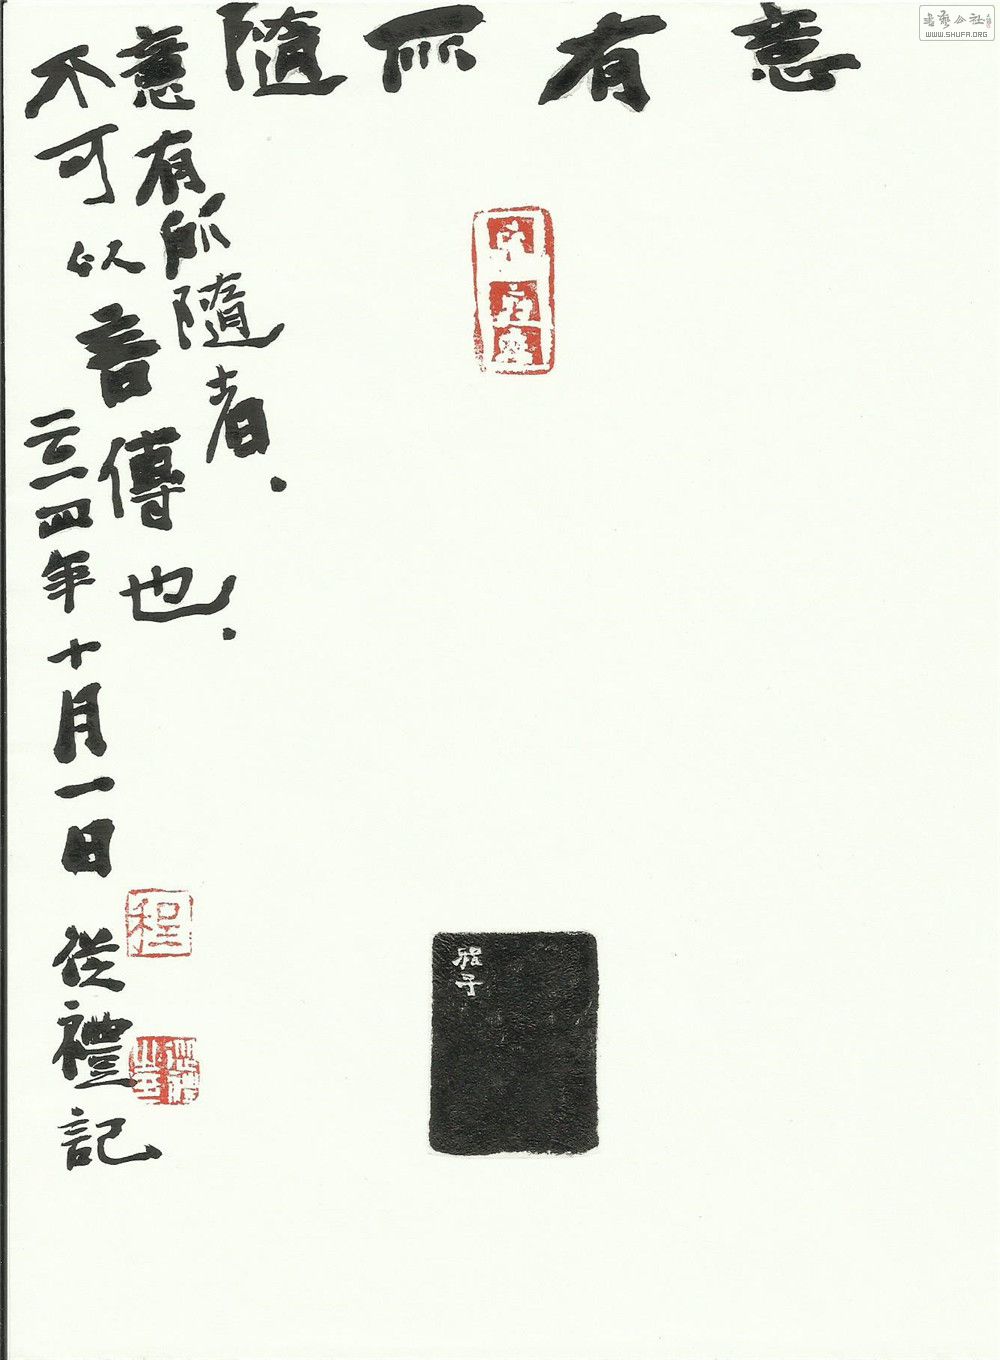 意有所隨
意有所隨者.
不可以言傳也.
二〇一四年十月一日 從禮記
程
程子
書藝公社
WWW.SHUFA.ORG